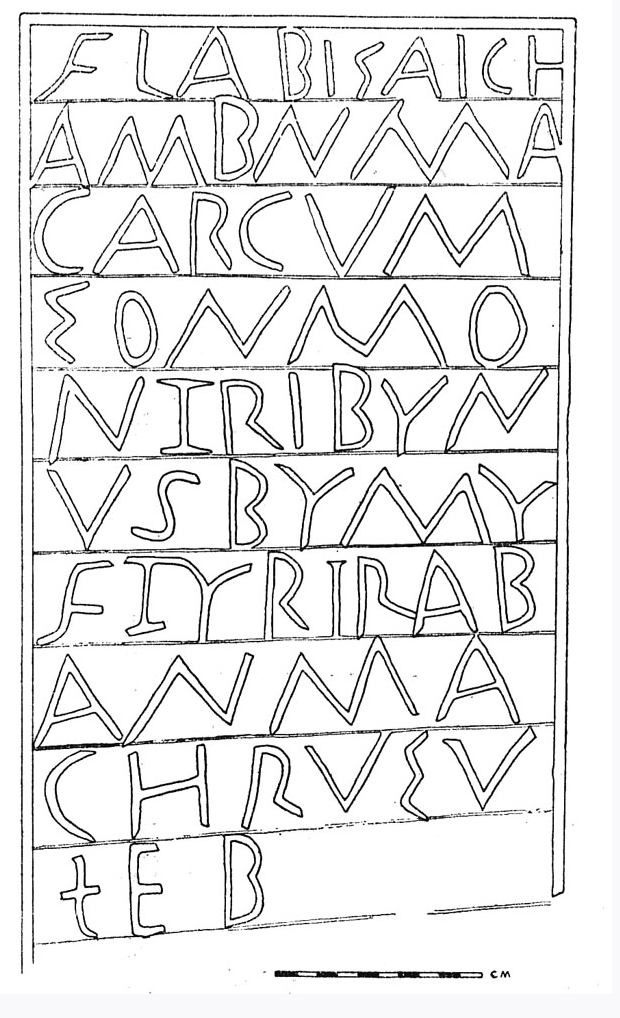 FLABIΣAICH
AMBNMA
CARCVM
ΣONMO
NIRIBYN
VSBYMY
FIYRIRAB
ANMA
CHRVΣV
tEB
CM